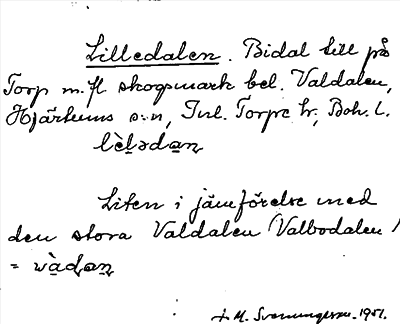 Lilledalen. Bidal till på
Torp m.fl skogsmark bel. Valdalen,
Hjärtums s:n, Inl. Torpe hr, Boh. l.
lèlədan̥
Liten i jämförelse med
den stora Valdalen (Valbodalen)
= wàdan̥
M. Svenungsson. 1951.